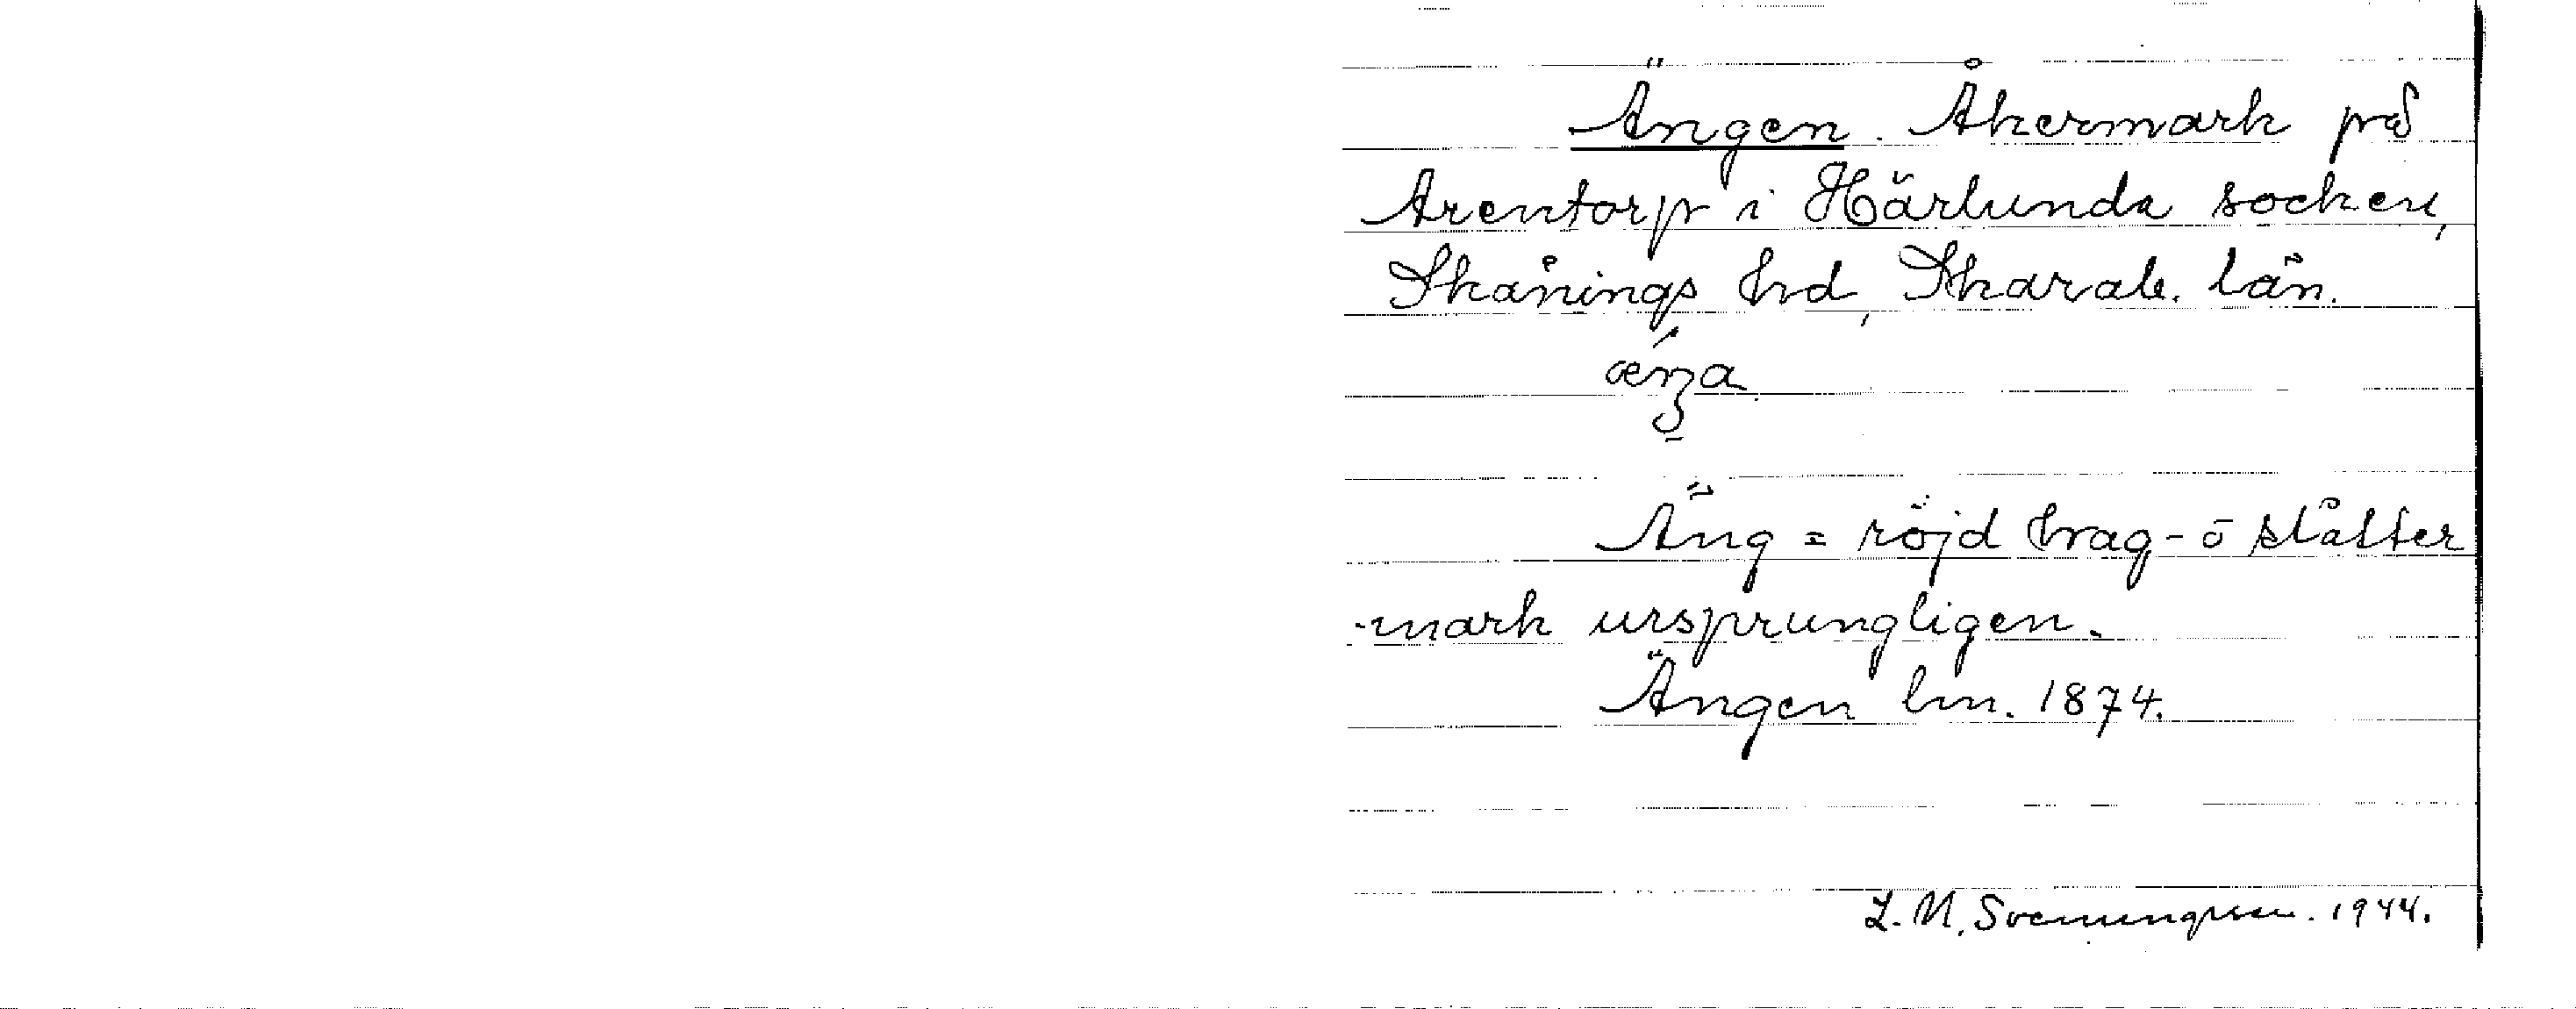 Ängen. Åkermark på
Arentorp i Härlunda socken,
Skånings hd, Skarab. län.
Äng = röjd hag- o slåtter
-mark ursprungligen.
Ängen lm. 1874.
L. M. Svenungsson. 1944.